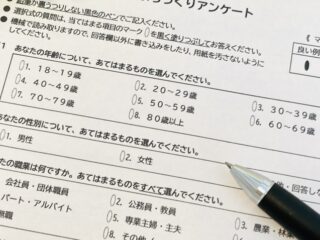 鉛筆か裏うつりしない黒色のペンでご記入ください。
選択式の質問は、当てはまる項目のマーク を黒く塗りつぶしてお答えください。
機械で読み取りますので、回答欄以外に書き込みをしたり、用紙を汚さないように
してください。
づくりアンケート
良い例
1 あなたの年齢について、あてはまるものを選んでください。
1. 18～19歳
2. 20～29歳
3. 30～39歳
4. 40～49歳
5. 50～59歳
6. 60～69歳
7. 70～79歳
8. 80歳以上
あなたの性別について、あてはまるものを選んでください。
1. 男性
2. 女性
回答しな
たの職業は何ですか。あてはまるものをすべて選んでください。
会社員・団体職員
2. 公務員・教員
3. 農業・林業
パート・アルバイト
5. 専業主婦・主夫
無職
8. その他